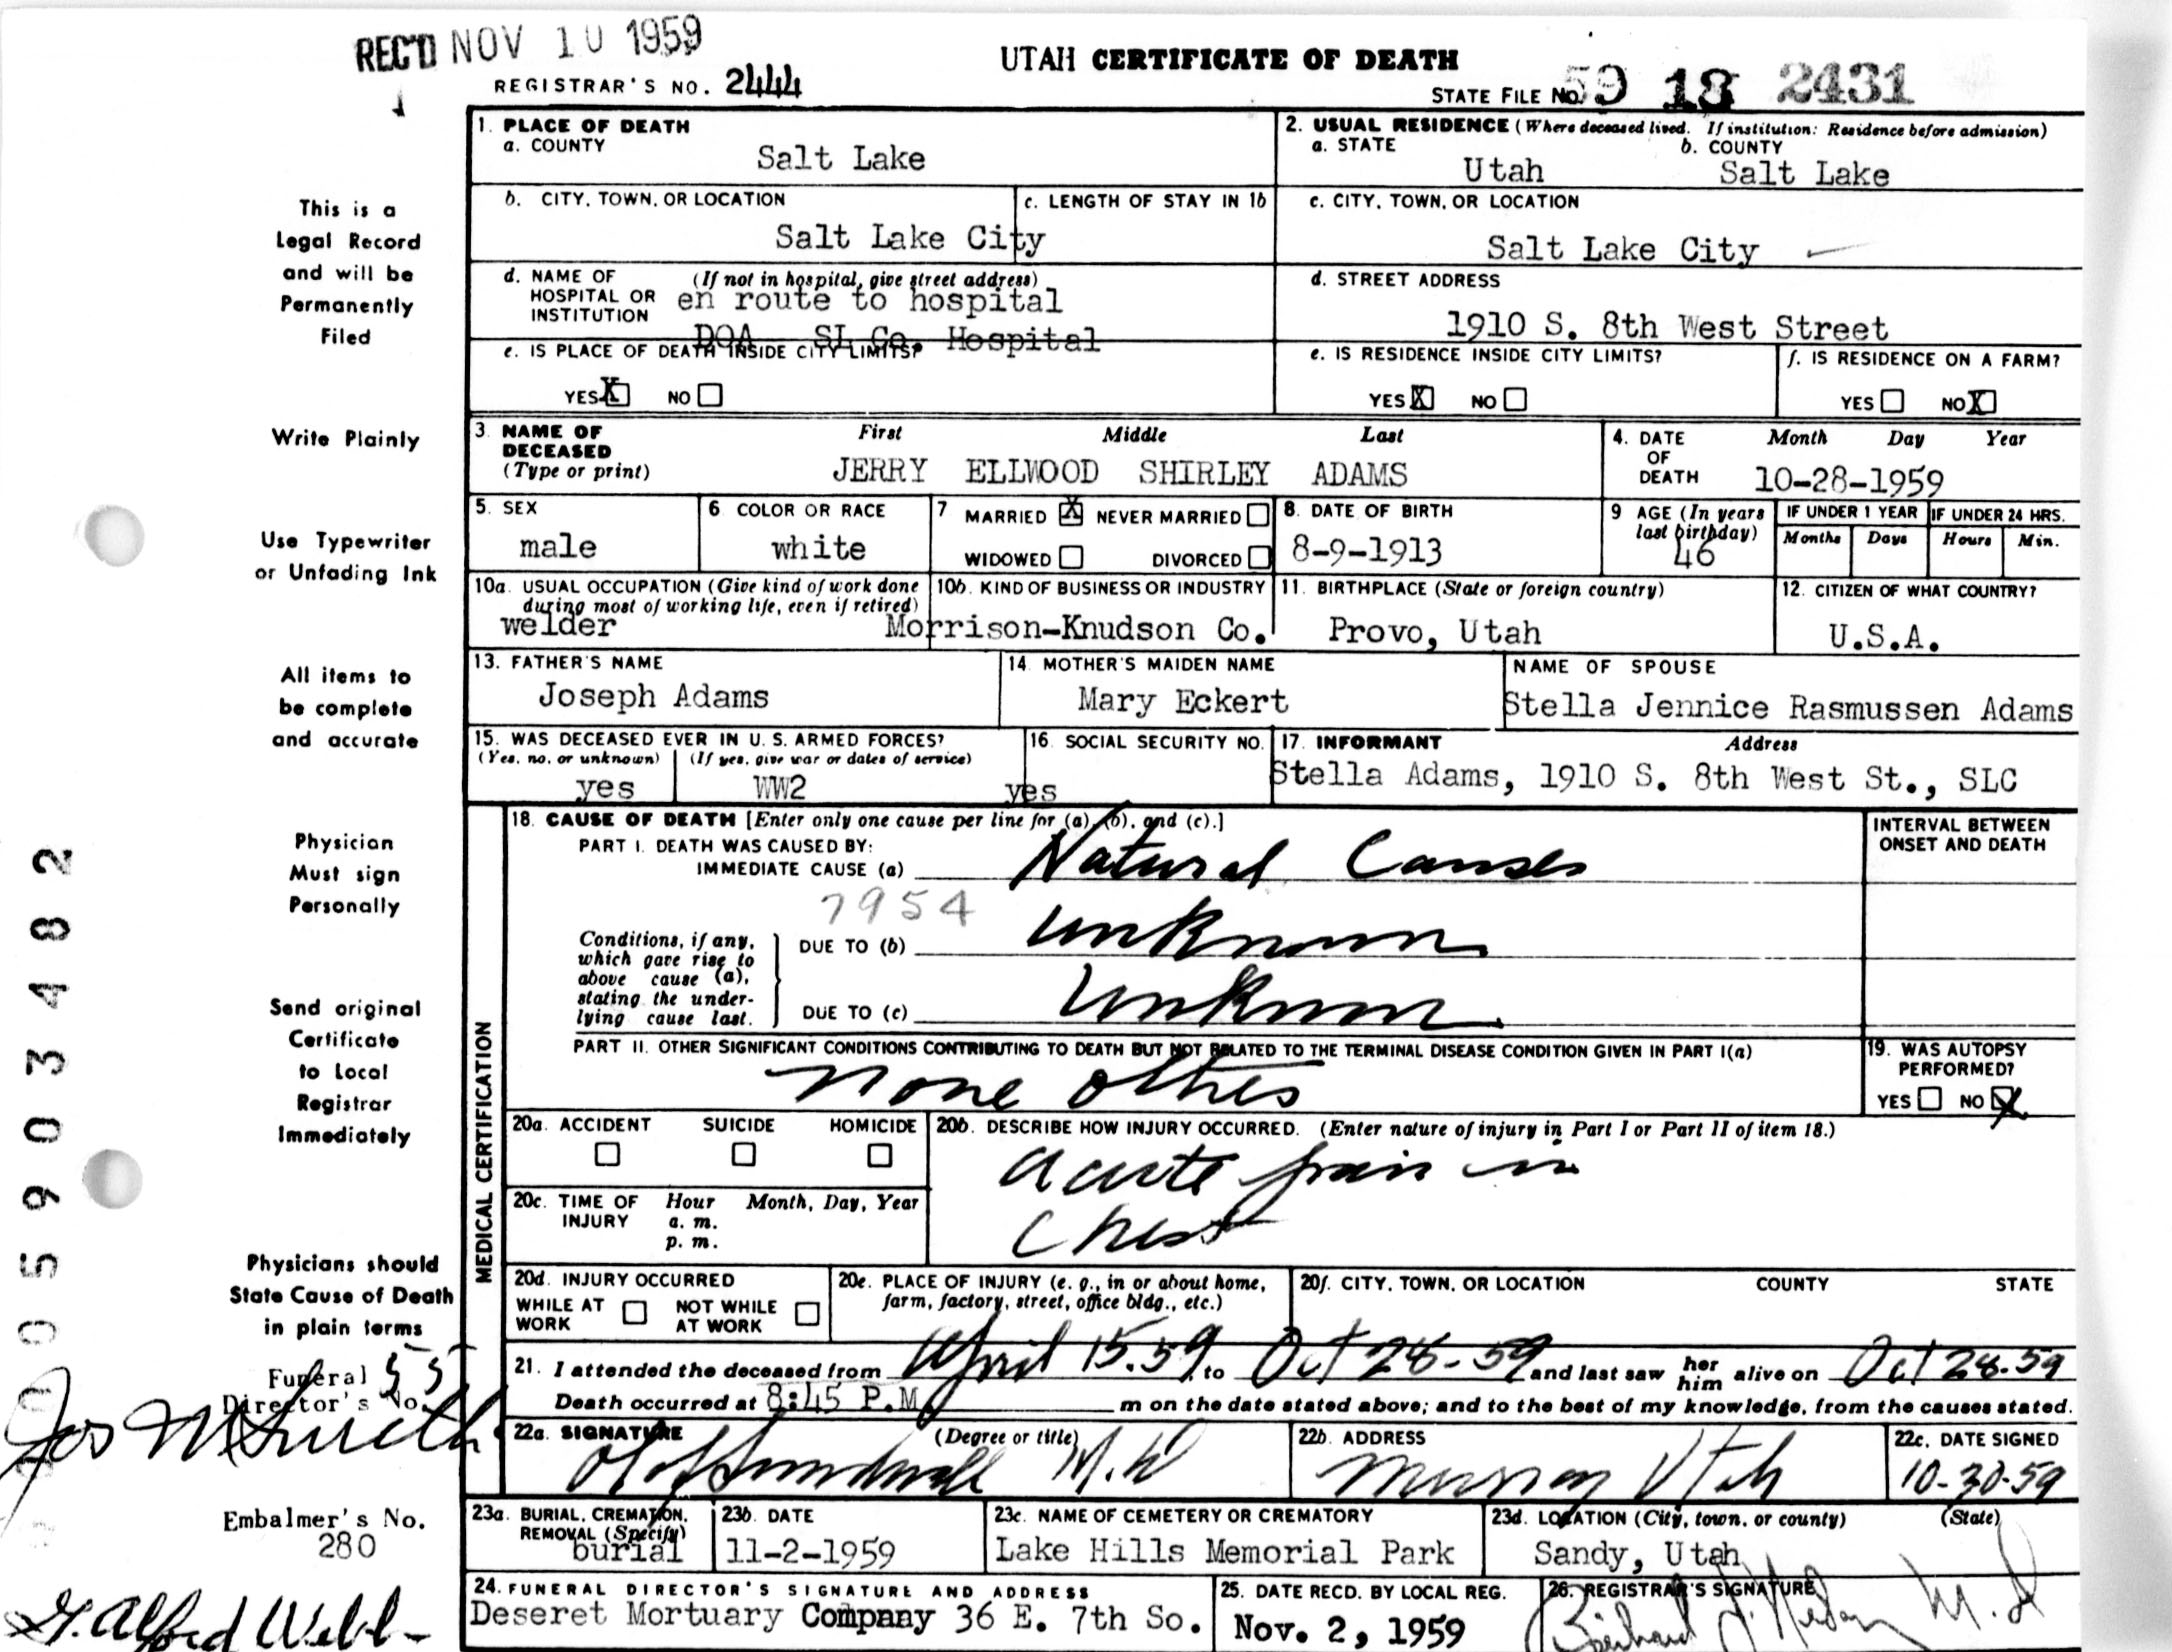 REC'D NOV 10 1959
UTAH CERTIFICATE OF DEATH
REGISTRAR'S NO. 2444
STATE FILE No. 59 18 2431
1. PLACE OF DEATH
a. COUNTY
Salt Lake
2. USUAL RESIDENCE (Where deceased lived. If institution: Residence before admission)
a. STATE
Utah
b. COUNTY
Salt Lake
b. CITY, TOWN, OR LOCATION
Salt Lake City
c. LENGTH OF STAY IN 1b
c. CITY, TOWN, OR LOCATION
Salt Lake City
d. NAME OF HOSPITAL OR INSTITUTION
(If not in hospital, give street address)
en route to hospital
DOA SL Co. Hospital
d. STREET ADDRESS
1910 S. 8th West Street
e. IS PLACE OF DEATH INSIDE CITY LIMITS?
YES X NO
e. IS RESIDENCE INSIDE CITY LIMITS?
YES X NO
f. IS RESIDENCE ON A FARM?
YES NO X
3. NAME OF DECEASED (Type or print)
First Middle Last
JERRY ELLWOOD SHIRLEY ADAMS
4. DATE OF DEATH
Month Day Year
10-28-1959
5. SEX
male
6 COLOR OR RACE
white
7 MARRIED X NEVER MARRIED
WIDOWED DIVORCED
8. DATE OF BIRTH
8-9-1913
9 AGE (In years last birthday)
46
IF UNDER 1 YEAR
Months Days
IF UNDER 24 HRS.
Hours Min.
10a. USUAL OCCUPATION (Give kind of work done during most of working life, even if retired)
welder
10b. KIND OF BUSINESS OR INDUSTRY
Morrison-Knudson Co.
11. BIRTHPLACE (State or foreign country)
Provo, Utah
12. CITIZEN OF WHAT COUNTRY?
U.S.A.
13. FATHER'S NAME
Joseph Adams
14. MOTHER'S MAIDEN NAME
Mary Eckert
NAME OF SPOUSE
Stella Jennice Rasmussen Adams
15. WAS DECEASED EVER IN U. S. ARMED FORCES?
(Yes, no, or unknown) (If yes, give war or dates of service)
yes WW2
16. SOCIAL SECURITY NO.
yes
17. INFORMANT Address
Stella Adams, 1910 S. 8th West St., SLC
MEDICAL CERTIFICATION
18. CAUSE OF DEATH [Enter only one cause per line for (a), (b), and (c).]
PART I. DEATH WAS CAUSED BY:
IMMEDIATE CAUSE (a) Natural Causes
INTERVAL BETWEEN ONSET AND DEATH
7954
Conditions, if any, which gave rise to above cause (a), stating the underlying cause last.
DUE TO (b) unknown
DUE TO (c) Unknown
PART II. OTHER SIGNIFICANT CONDITIONS CONTRIBUTING TO DEATH BUT NOT RELATED TO THE TERMINAL DISEASE CONDITION GIVEN IN PART I(a)
none others
19. WAS AUTOPSY PERFORMED?
YES NO X
20a. ACCIDENT SUICIDE HOMICIDE
20b. DESCRIBE HOW INJURY OCCURRED. (Enter nature of injury in Part I or Part II of item 18.)
acute pain in
Chest
20c. TIME OF INJURY Hour Month, Day, Year
a. m.
p. m.
20d. INJURY OCCURRED
WHILE AT WORK NOT WHILE AT WORK
20e. PLACE OF INJURY (e. g., in or about home, farm, factory, street, office bldg., etc.)
20f. CITY, TOWN, OR LOCATION COUNTY STATE
21. I attended the deceased from April 15.59, to Oct 28-59 and last saw her him alive on Oct 28-59
Death occurred at 8:45 P.M. m on the date stated above; and to the best of my knowledge, from the causes stated.
22a. SIGNATURE (Degree or title)
M.D
22b. ADDRESS
Murray Utah
22c. DATE SIGNED
10-30-59
23a. BURIAL, CREMATION, REMOVAL (Specify)
burial
23b. DATE
11-2-1959
23c. NAME OF CEMETERY OR CREMATORY
Lake Hills Memorial Park
23d. LOCATION (City, town, or county) (State)
Sandy, Utah
24. FUNERAL DIRECTOR'S SIGNATURE AND ADDRESS
Deseret Mortuary Company 36 E. 7th So.
25. DATE RECD. BY LOCAL REG.
Nov. 2, 1959
26. REGISTRAR'S SIGNATURE
M.D
This is a
Legal Record
and will be
Permanently
Filed
Write Plainly
Use Typewriter
or Unfading Ink
All items to
be complete
and accurate
Physician
Must sign
Personally
Send original
Certificate
to Local
Registrar
Immediately
Physicians should
State Cause of Death
in plain terms
Funeral 55
Director's No.
Jos M Smith
Embalmer's No.
280
G. Alfred Webb